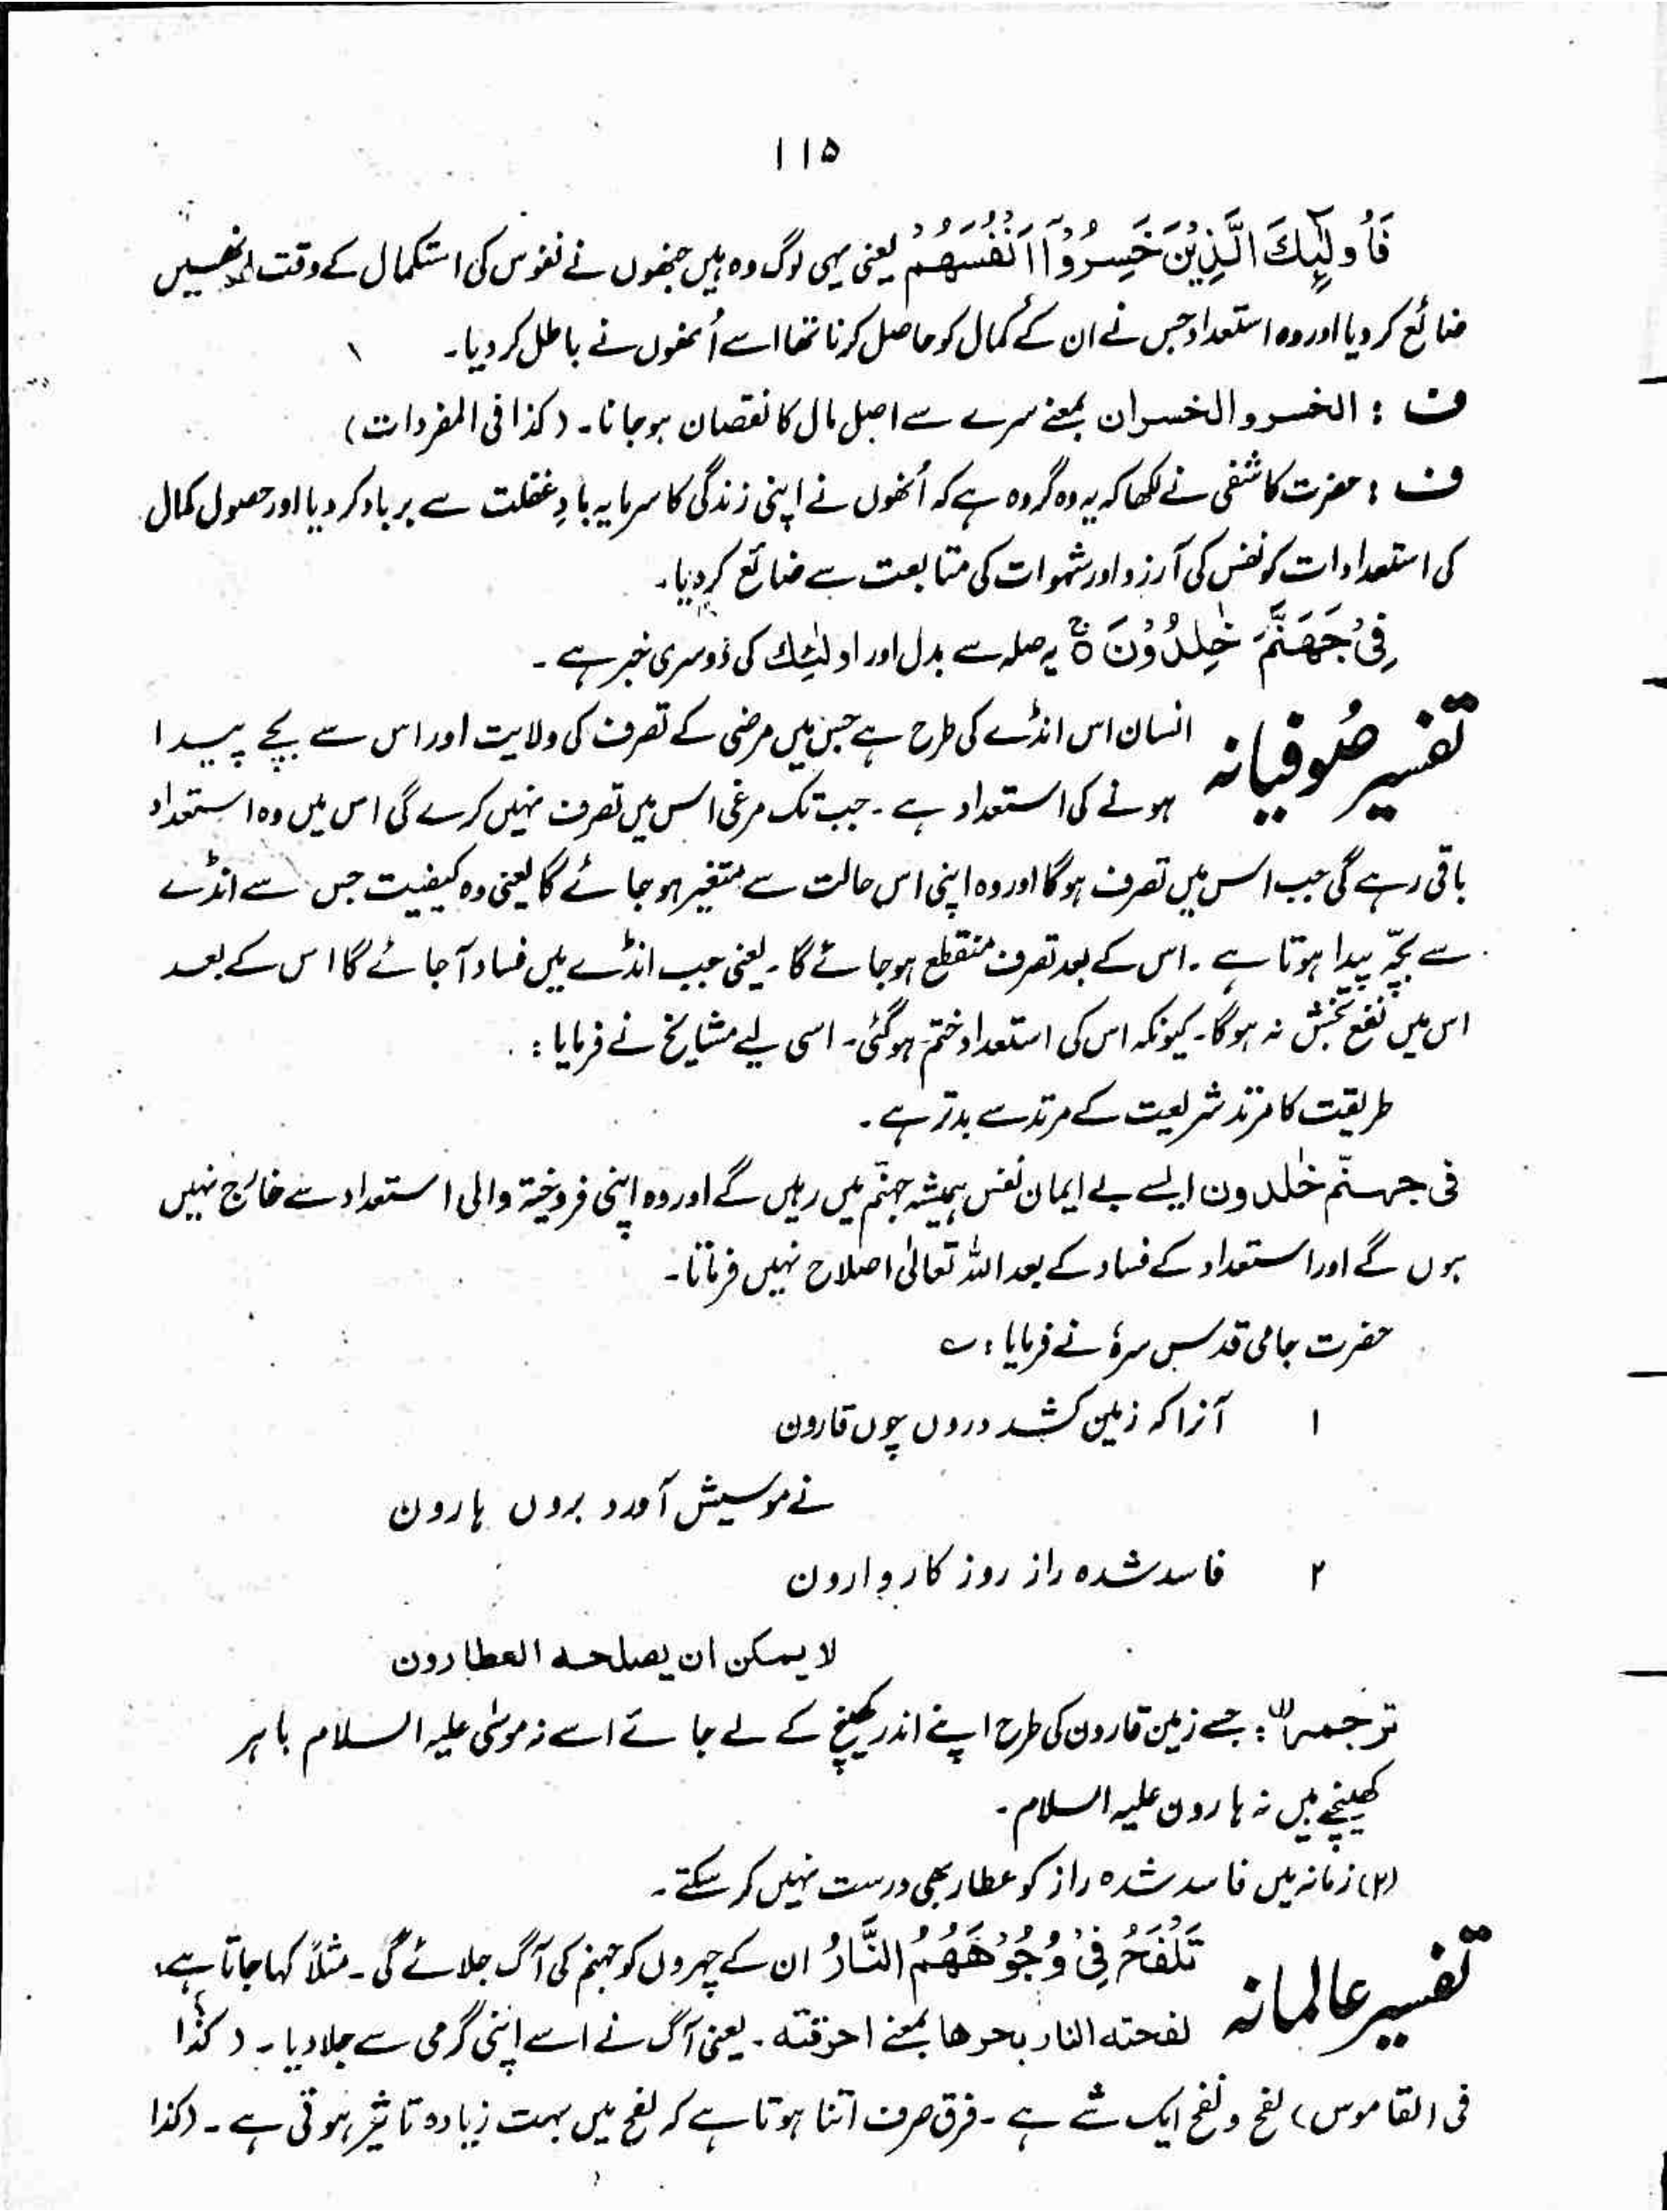 ۱۱۵
فَاُولٰٓئِكَ الَّذِيْنَ خَسِرُوْٓا اَنْفُسَهُمْ یعنی یہی لوگ وہ ہیں جنھوں نے نفوس کی استکمال کے وقت انھیں
ضائع کر دیا اور وہ استعداد جس نے ان کے کمال کو حاصل کرنا تھا اسے اُنھوں نے باطل کر دیا۔
ف : الخسر و الخسران بمعنے سرے سے اصل مال کا نقصان ہو جانا۔ (کذا فی المفردات)
ف : حضرت کاشفی نے لکھا کہ یہ وہ گروہ ہے کہ اُنھوں نے اپنی زندگی کا سرمایہ بادِ غفلت سے برباد کر دیا اور حصول کمال
کی استعدادات کو نفس کی آرزو اور شہوات کی متابعت سے ضائع کر دیا۔
فِيْ جَهَنَّمَ خٰلِدُوْنَ ۚ یہ صلہ سے بدل اور اولٰئِك کی دُوسری خبر ہے ۔
تفسیر صُوفیانہ انسان اس انڈے کی طرح ہے جس میں مرضی کے تصرف کی ولایت اور اس سے بچے پیدا
ہونے کی استعداد ہے ۔ جب تک مرغی اس میں تصرف نہیں کرے گی اس میں وہ استعداد
باقی رہے گی جب اس میں تصرف ہوگا اور وہ اپنی اس حالت سے متغیر ہو جائے گا یعنی وہ کیفیت جس سے انڈے
سے بچّہ پیدا ہوتا ہے ۔ اس کے بعد تصرف منقطع ہو جائے گا ۔ یعنی جب انڈے میں فساد آ جائے گا اس کے بعد
اس میں نفع بخش نہ ہوگا ۔ کیونکہ اس کی استعداد ختم ہوگئی۔ اسی لیے مشایخ نے فرمایا :
طریقت کا مرتد شریعت کے مرتد سے بدتر ہے ۔
فی جہنّم خٰلدون ایسے بے ایمان نفس ہمیشہ جہنّم میں رہیں گے اور وہ اپنی فروختہ والی استعداد سے خارج نہیں
ہوں گے اور استعداد کے فساد کے بعد اللہ تعالیٰ اصلاح نہیں فرماتا۔
حضرت جامی قدس سرہٗ نے فرمایا : ؎
۱ آنرا کہ زمین کشد دروں چوں قارون
نے موسیش آورد بروں ہارون
۲ فاسد شدہ راز روزکار وارون
لا یمکن ان یصلحہ العطارون
ترجمہ (۱) : جسے زمین قارون کی طرح اپنے اندر کھینچ کے لے جائے اسے نہ موسٰی علیہ السلام باہر
کھینچے ہیں نہ ہارون علیہ السلام ۔
(۲) زمانہ میں فاسد شدہ راز کو عطار بھی درست نہیں کر سکتے ۔
تفسیر عالمانہ تَلْفَحُ فِيْ وُجُوْهَهُمُ النَّارُ ان کے چہروں کو جہنم کی آگ جلائے گی ۔ مثلاً کہا جاتا ہے،
لفحته النار بحرها بمعنے احرقته ۔ یعنی آگ نے اسے اپنی گرمی سے جلا دیا ۔ (کذا
فی القاموس) لفح و نفح ایک شے ہے ۔ فرق صرف اتنا ہوتا ہے کہ لفح میں بہت زیادہ تاثیر ہوتی ہے ۔ (کذا